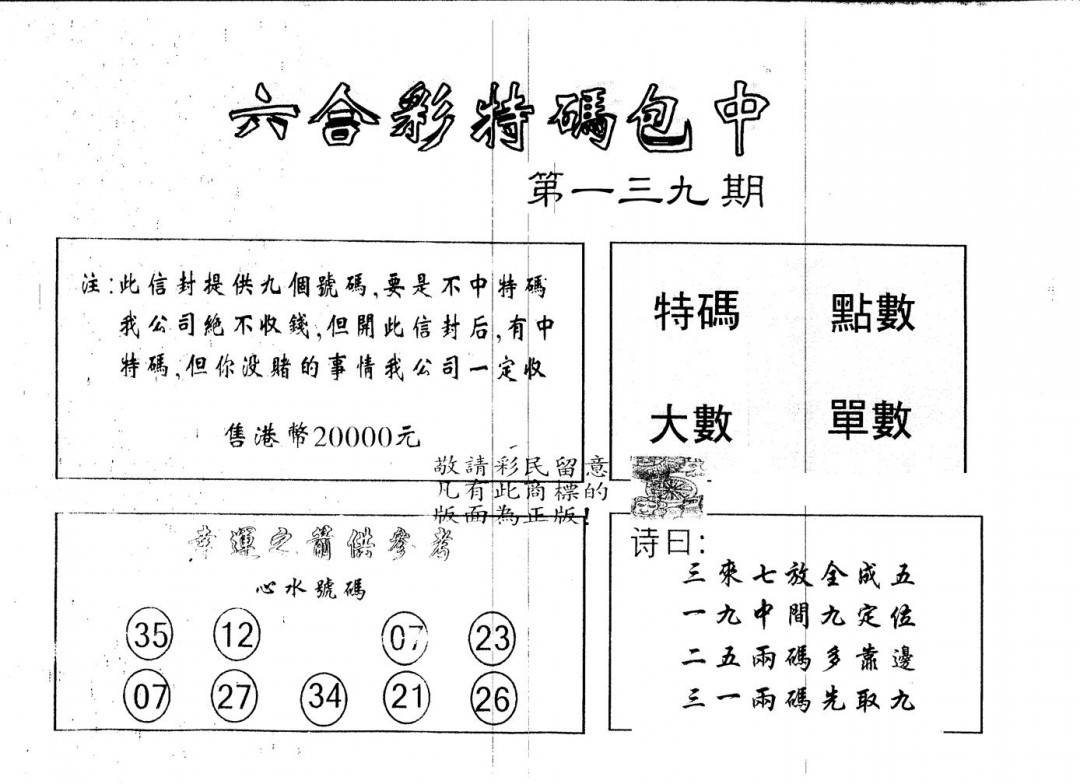 六合彩特碼包中
第一三九期
注:此信封提供九個號碼,要是不中特碼
我公司絶不收錢,但開此信封后,有中
特碼,但你没賭的事情我公司一定收
售港幣20000元
特碼 點數
大數 單數
敬請彩民留意
凡有此商標的
版面為正版!
幸運之箭供參考
心水號碼
35 12 07 23
07 27 34 21 26
诗曰:
三來七放全成五
一九中間九定位
二五兩碼多靠邊
三一兩碼先取九